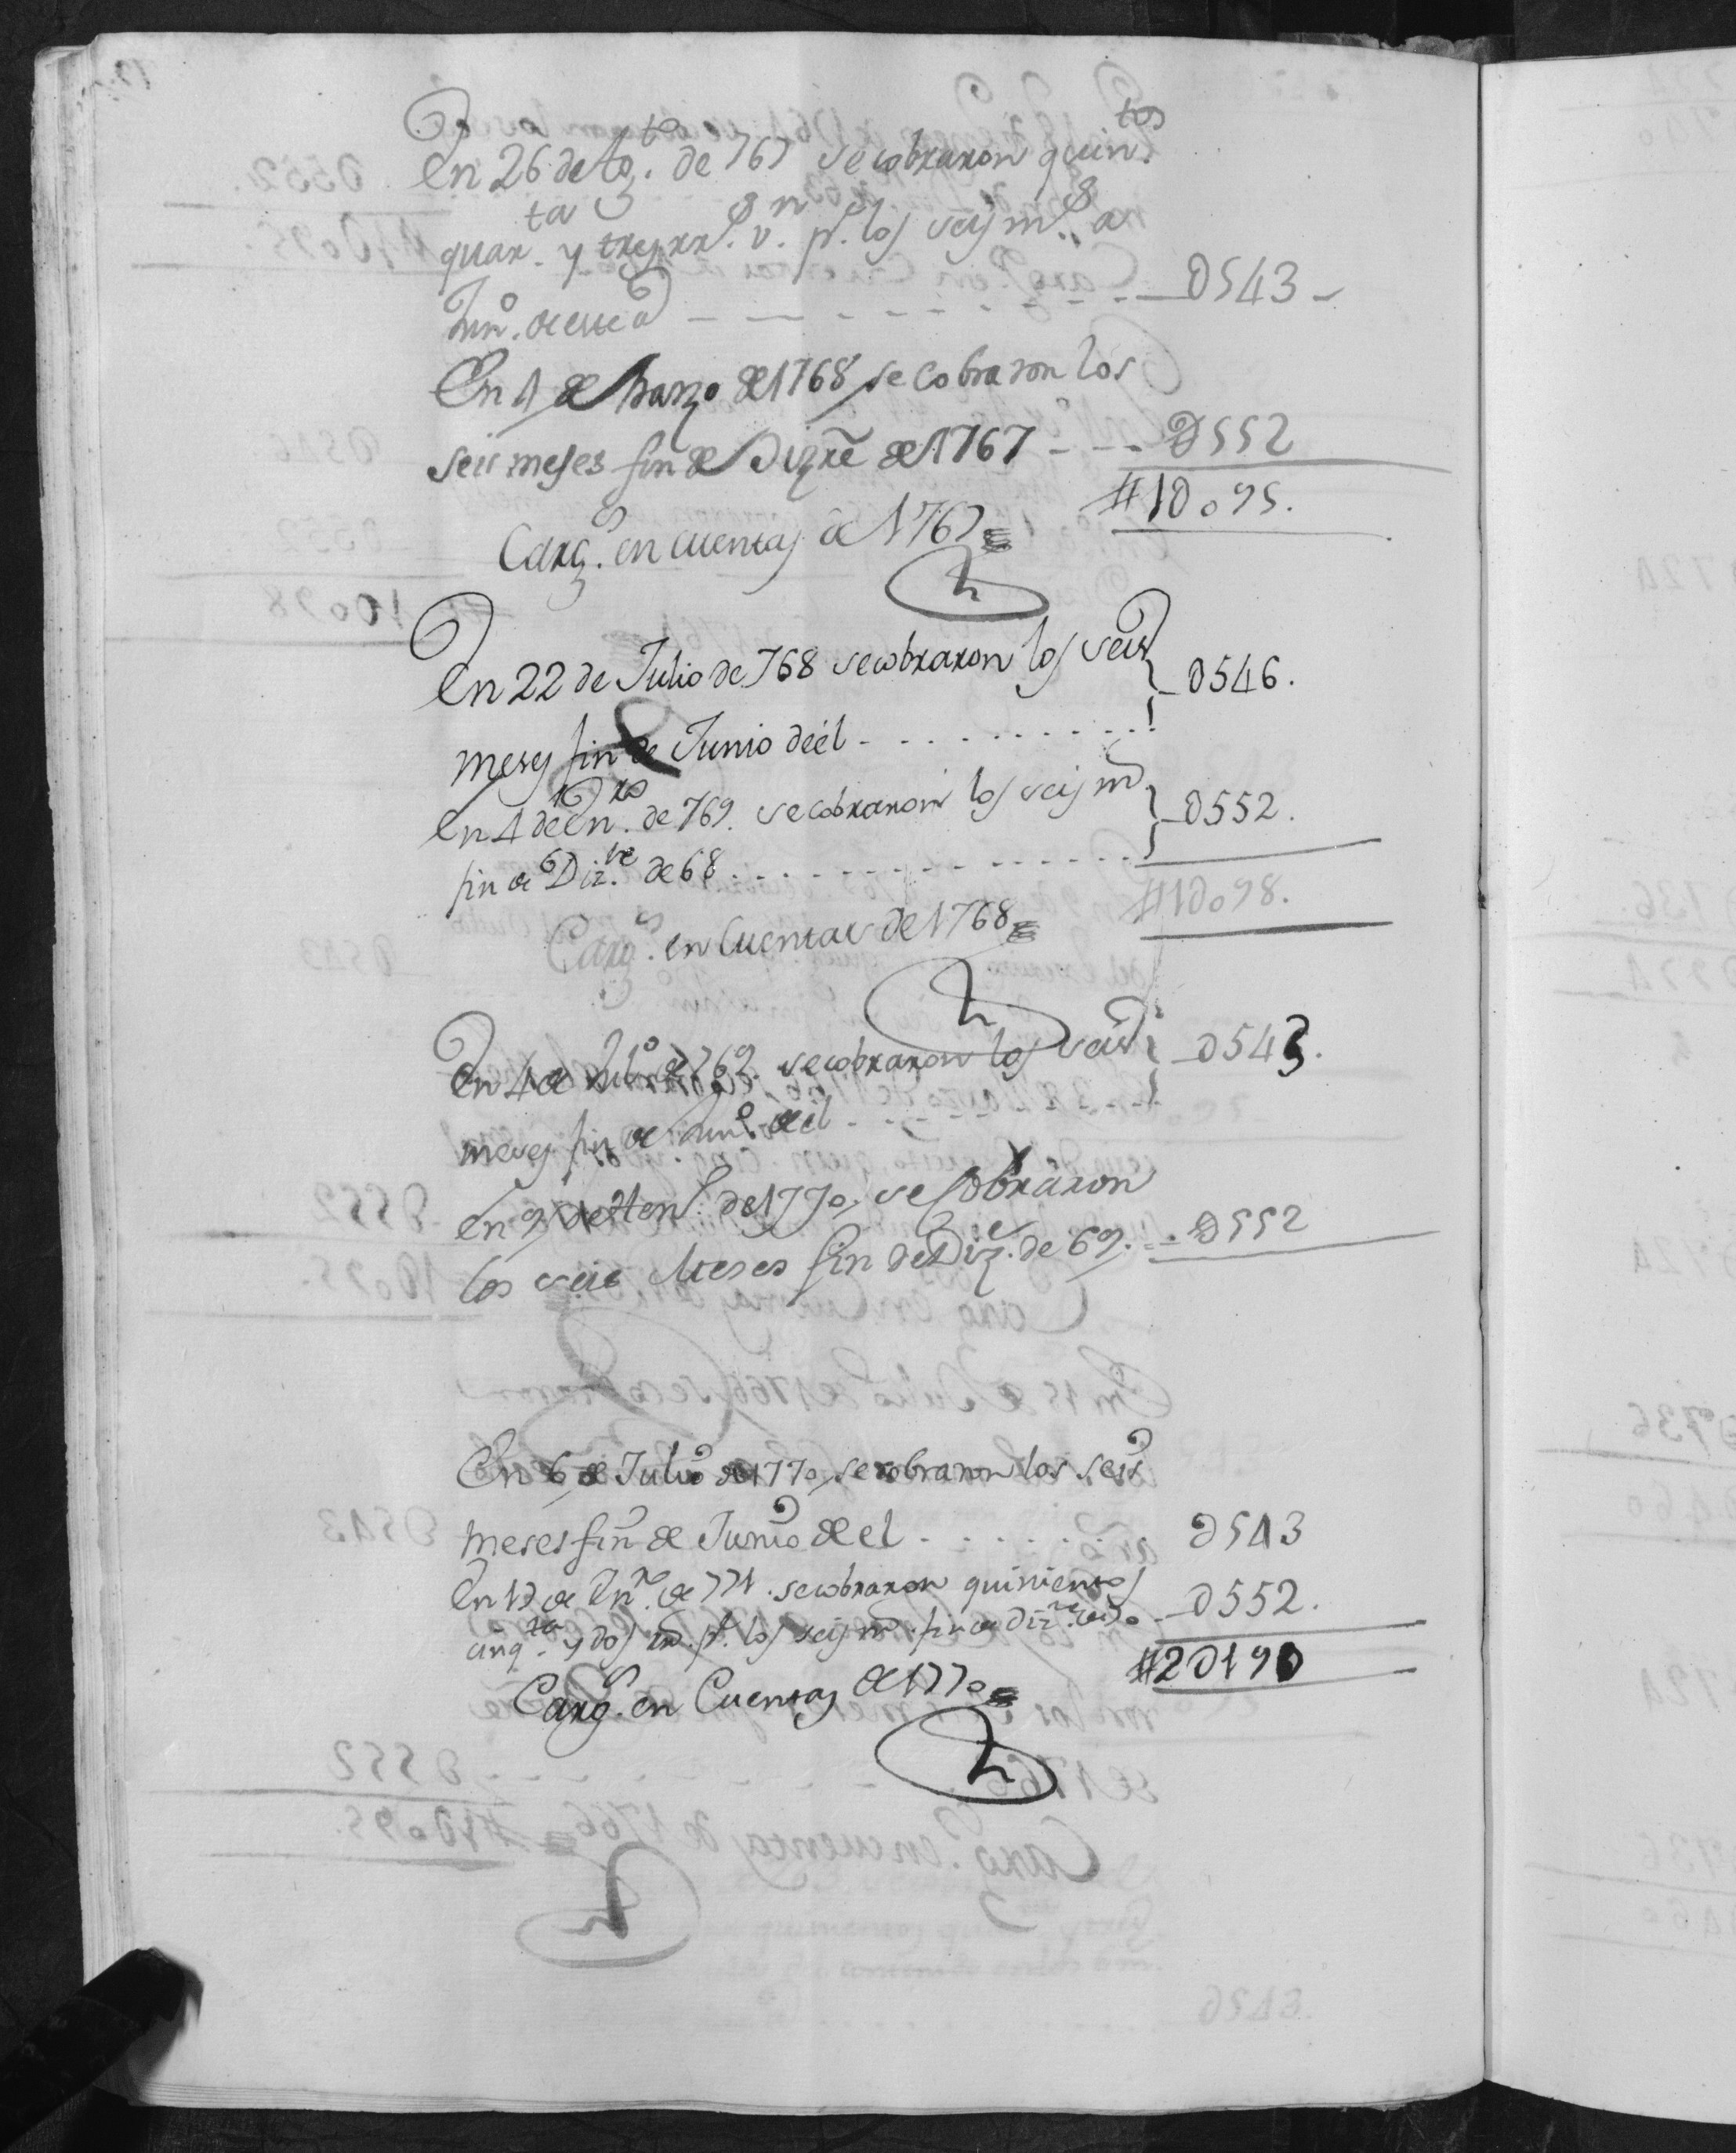 En 26 de Ag.to de 767 se cobraron quin.tos
quar.ta y tres rr.s v.n p.r los seis m.s a
Jun.o de este a
0543
En 1 de Marzo de 1768 se cobraron los
seis meses fin de Dizre de 1767 - - - 0552
#10095.
Carg.o en cuentas de 1767
En 22 de Julio de 768 se cobraron los seis
meses fin de Junio de él - 0546.
En 4 de En.ro de 769. se cobraron los seis m.
fin de Diz.re de 68 - 0552.
#10098.
Carg.o en Cuentas de 1768
En 4 de Jul.o de 769. se cobraron los seis
meses fin de Jun.o de el - 0543.
En 9 de En.o de 1770, se cobraron
los seis Meses fin de Diz.e de 69. - 0552
En 6 de Julio de 1770, se cobraron los seis
meses fin de Junio de el - 0543
En 17 de En.ro de 771. se cobraron quinientos
cinq.ta y dos rr. p.r los seis m. fin de Diz.re de 70 - 0552.
#20190
Carg.o en Cuentas de 1770